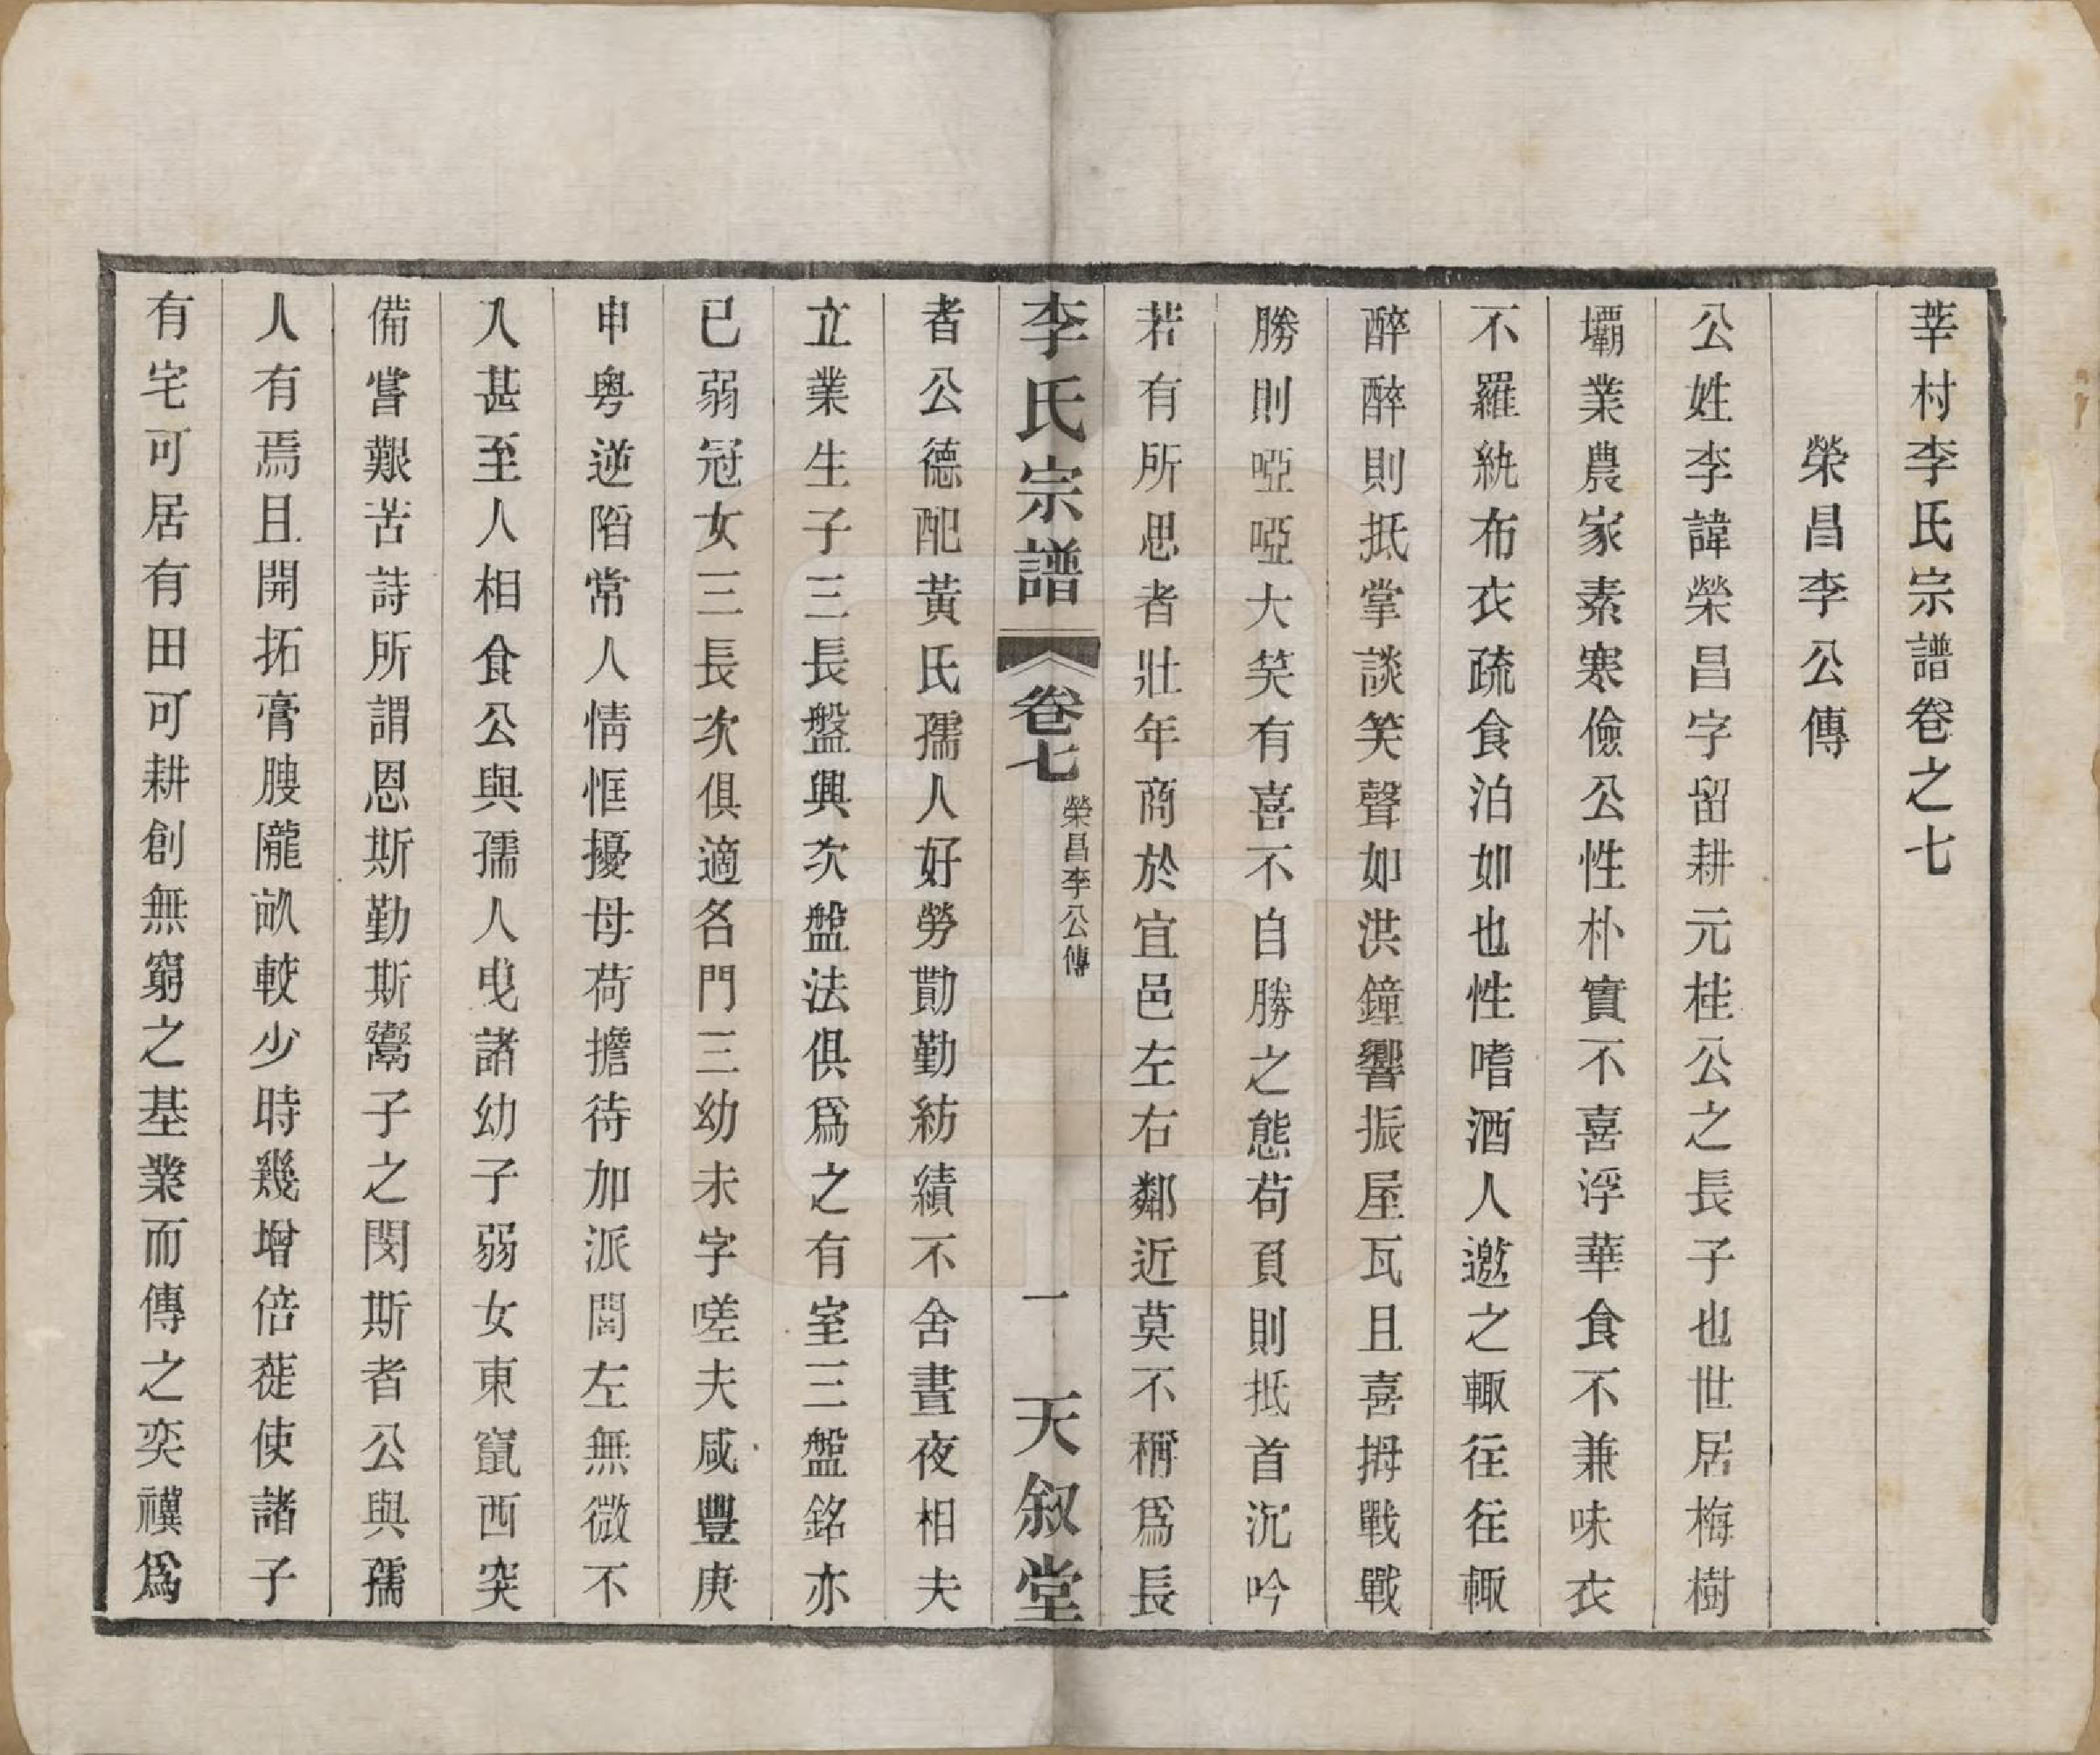 莘村李氏宗譜卷之七
榮昌李公傳
公姓李諱榮昌字留耕元桂公之長子也世居梅樹
壩業農家素寒儉公性朴實不喜浮華食不兼味衣
不羅紈布衣疏食泊如也性嗜酒人邀之輙往往輙
醉醉則抵掌談笑聲如洪鐘響振屋瓦且喜拇戰戰
勝則啞啞大笑有喜不自勝之態苟負則抵首沉吟
若有所思者壯年商於宜邑左右鄰近莫不稱爲長
李氏宗譜
卷七
榮昌李公傳
一
天叙堂
者公德配黃氏孺人好勞勤勤紡績不舍晝夜相夫
立業生子三長盤興次盤法俱爲之有室三盤銘亦
已弱冠女三長次俱適名門三幼未字嗟夫咸豐庚
申粵逆陷常人情恇擾母荷擔待加派閭左無微不
入甚至人相食公與孺人曳諸幼子弱女東竄西突
備嘗艱苦詩所謂恩斯勤斯鬻子之閔斯者公與孺
人有焉且開拓膏腴隴畝較少時幾增倍蓰使諸子
有宅可居有田可耕創無窮之基業而傳之奕禩爲